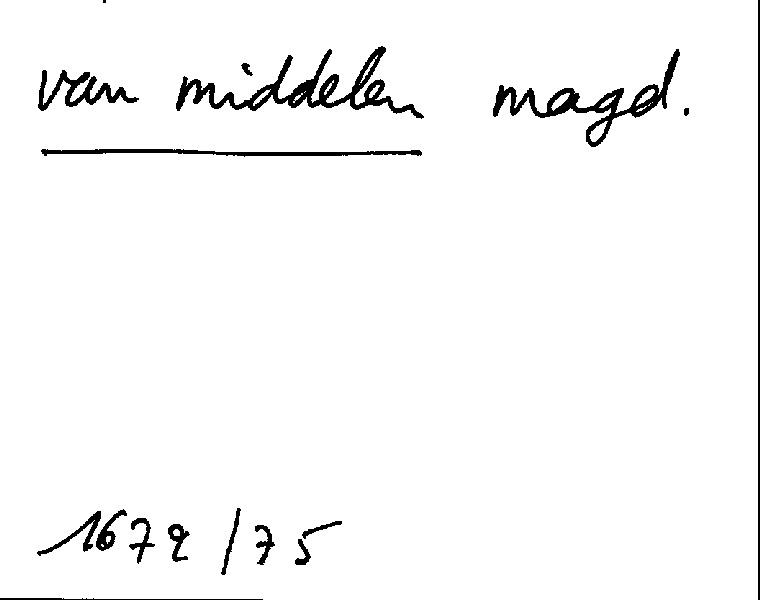 van middelen magd.
1672/75